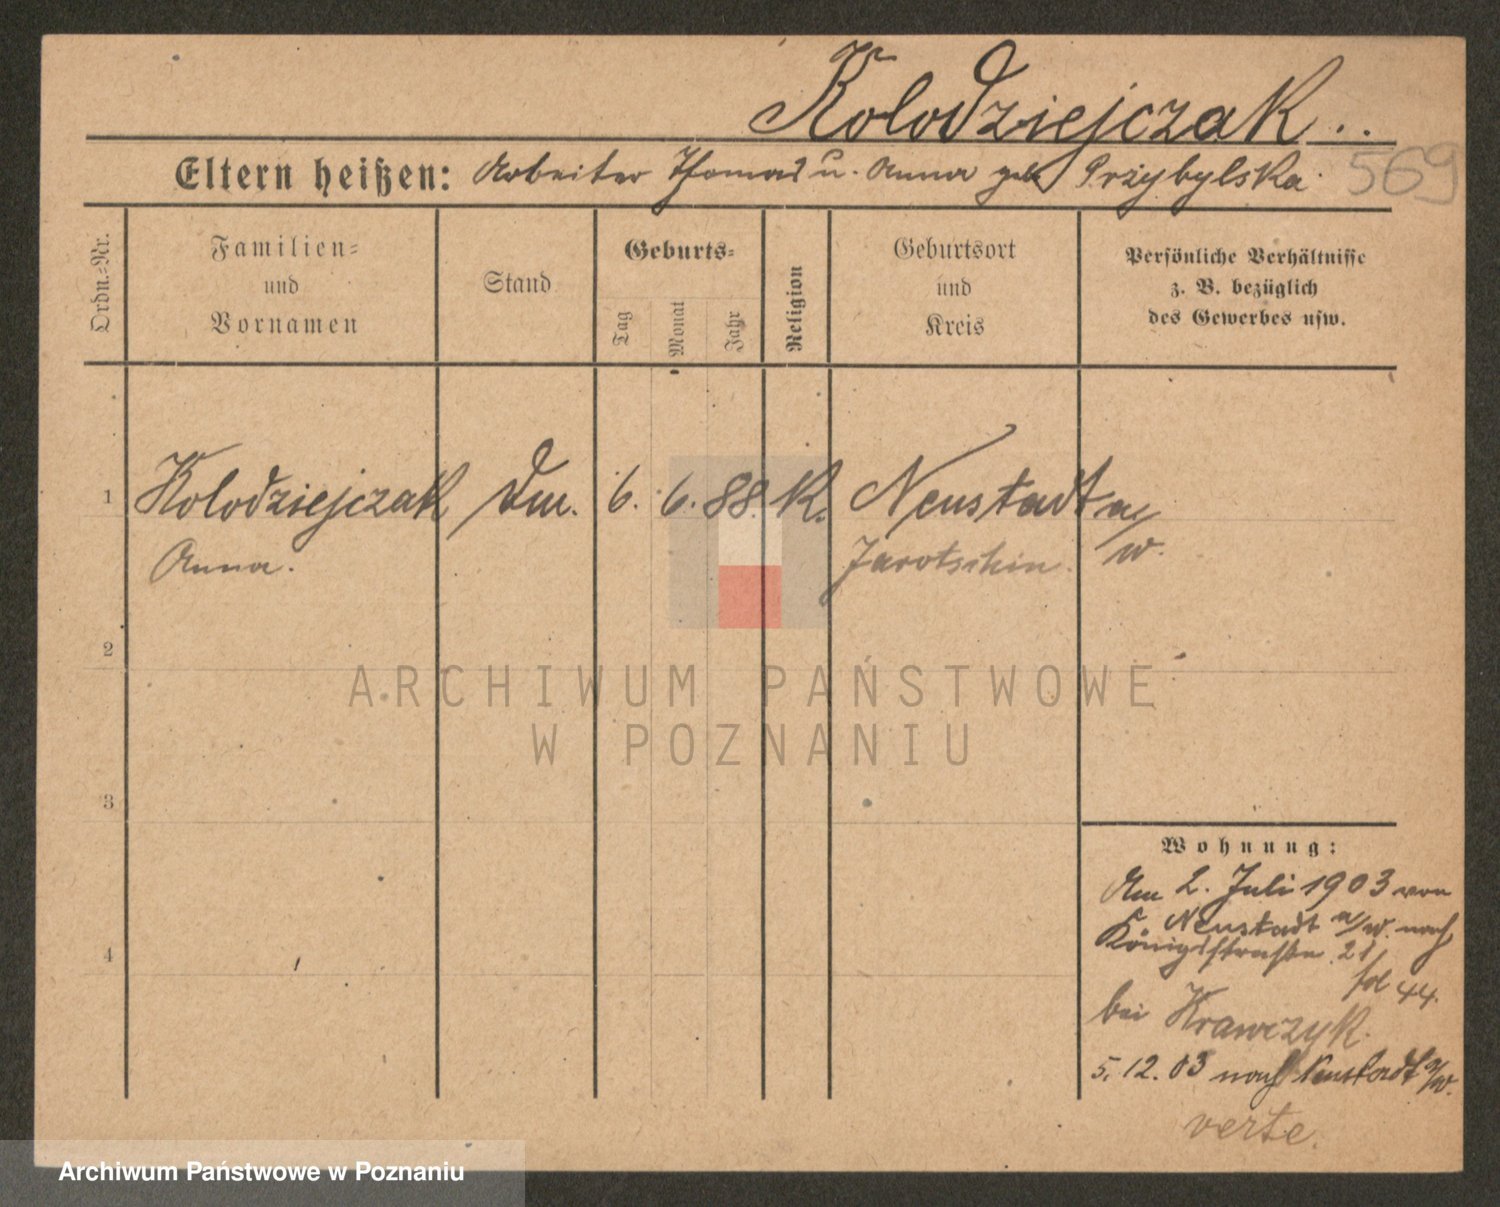 Kolodziejczak..
Eltern heißen: Arbeiter Thomas u. Anna geb Przybylska
569
Ordn.-Nr.
Familien- und Vornamen
Stand
Geburts-
Tag
Monat
Jahr
Religion
Geburtsort und Kreis
Persönliche Verhältnisse
z. B. bezüglich
des Gewerbes usw.
1 Kolodziejczak Dm. 6. 6. 88. K. Neustadt a/w.
Anna. Jarotschin.
2
ARCHIWUM PAŃSTWOWE
W POZNANIU
3
Wohnung:
Am 2. Juli 1903 von
Neustadt a/W. nach
Königsstraße 21
4
fol 44.
bei Krawczyk.
5. 12. 03 nach Neustadt a/W.
verte.
Archiwum Państwowe w Poznaniu